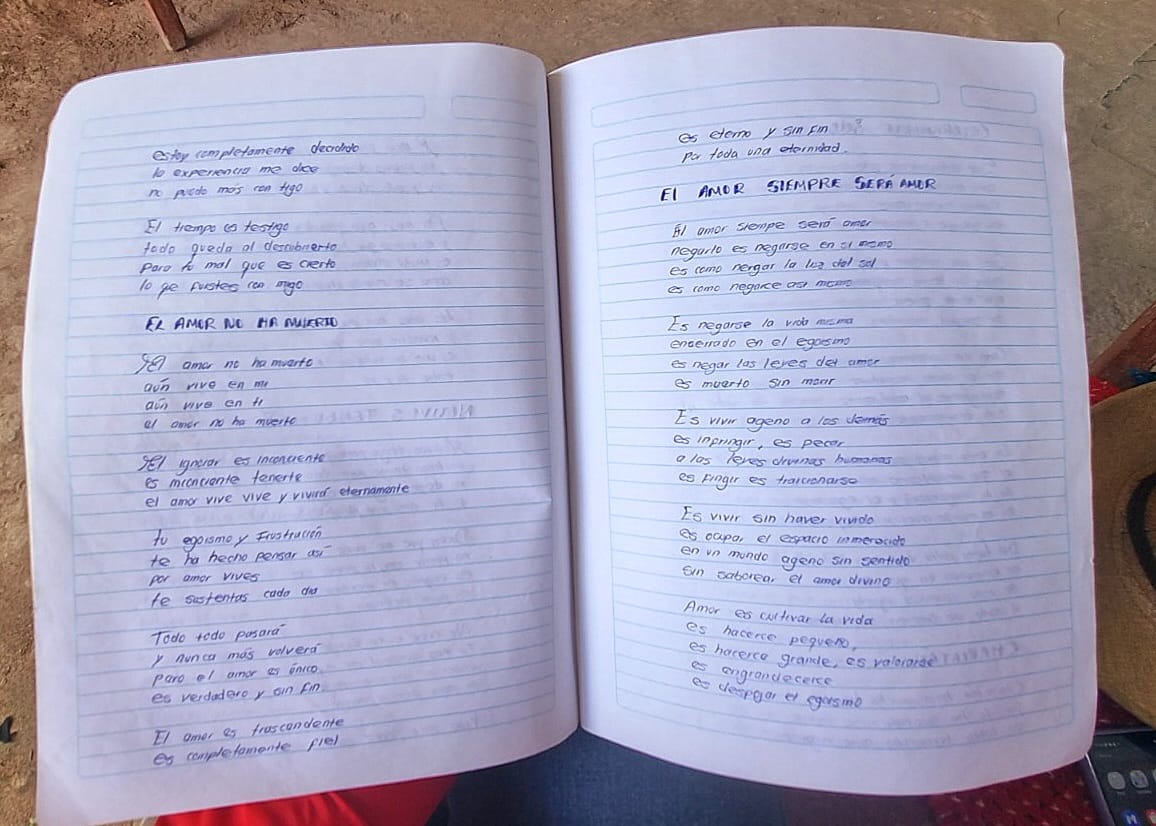 estoy completamente decidido
la experiencia me dice
no puedo más con tigo
El tiempo es testigo
todo queda al descubierto
para tu mal que es cierto
lo que fuistes con migo
EL AMOR NO HA MUERTO
El amor no ha muerto
aún vive en mi
aún vive en ti
el amor no ha muerto
El ignorar es inconciente
es inconciente tenerte
el amor vive vive y vivirá eternamente
tu egoismo y Frustración
te ha hecho pensar así
por amor vives
te sustentas cada dia
Todo todo pasará
y nunca más volverá
pero el amor es único
es verdadero y sin fin
El amor es trascendente
es completamente fiel
es eterno y sin fin
por toda una eternidad.
El AMOR SIEMPRE SERÁ AMOR
El amor siempe será amor
negarlo es negarse en si mismo
es como nergar la luz del sol
es como negarce asi mismo
Es negarse la vida misma
encerrado en el egoismo
es negar las leyes del amor
es muerto sin morir
Es vivir ageno a los demás
es infringir, es pecar
a las leyes divinas humanas
es fingir es traicionarse
Es vivir sin haver vivido
es ocupar el espacio inmerecido
en un mundo ageno sin sentido
sin saborear el amor divino
Amor es cultivar la vida
es hacerce pequeño,
es hacerce grande, es valorarse
es engrandecerce
es despojar el egoismo